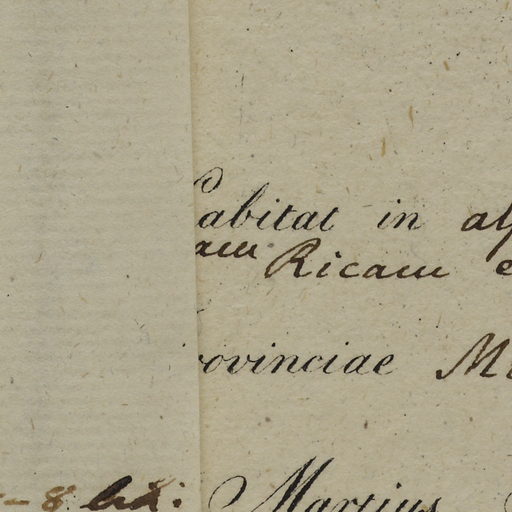 abitat in al
am Ricam e
rovinciae M
-8 Martius